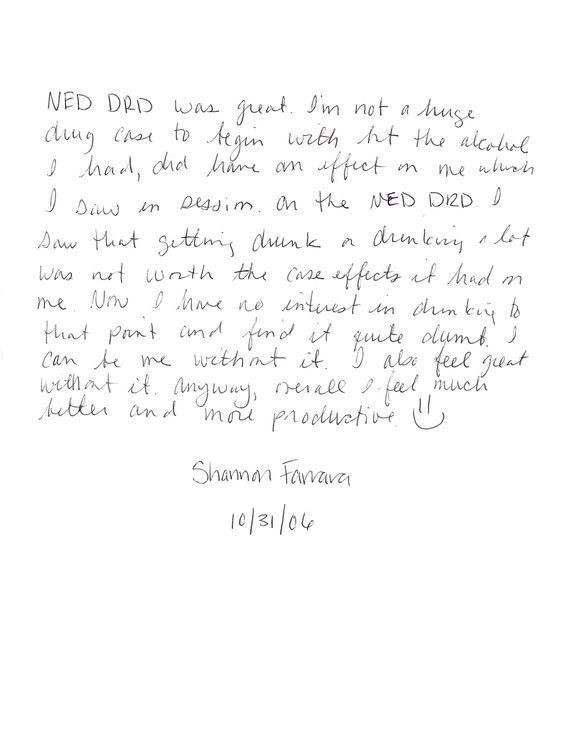 NED DRD was great. I'm not a huge
drug case to begin with but the alcohol
I had, did have an effect on me which
I saw in session. On the NED DRD I
saw that getting drunk or drinking a lot
was not worth the case effects it had on
me. Now I have no interest in drinking to
that point and find it quite dumb. I
can be me without it. I also feel great
without it. Anyway, overall I feel much
better and more productive.
Shannon Farrara
10/31/06